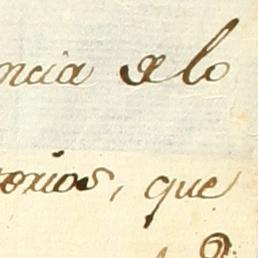 ncia de lo
torios, que